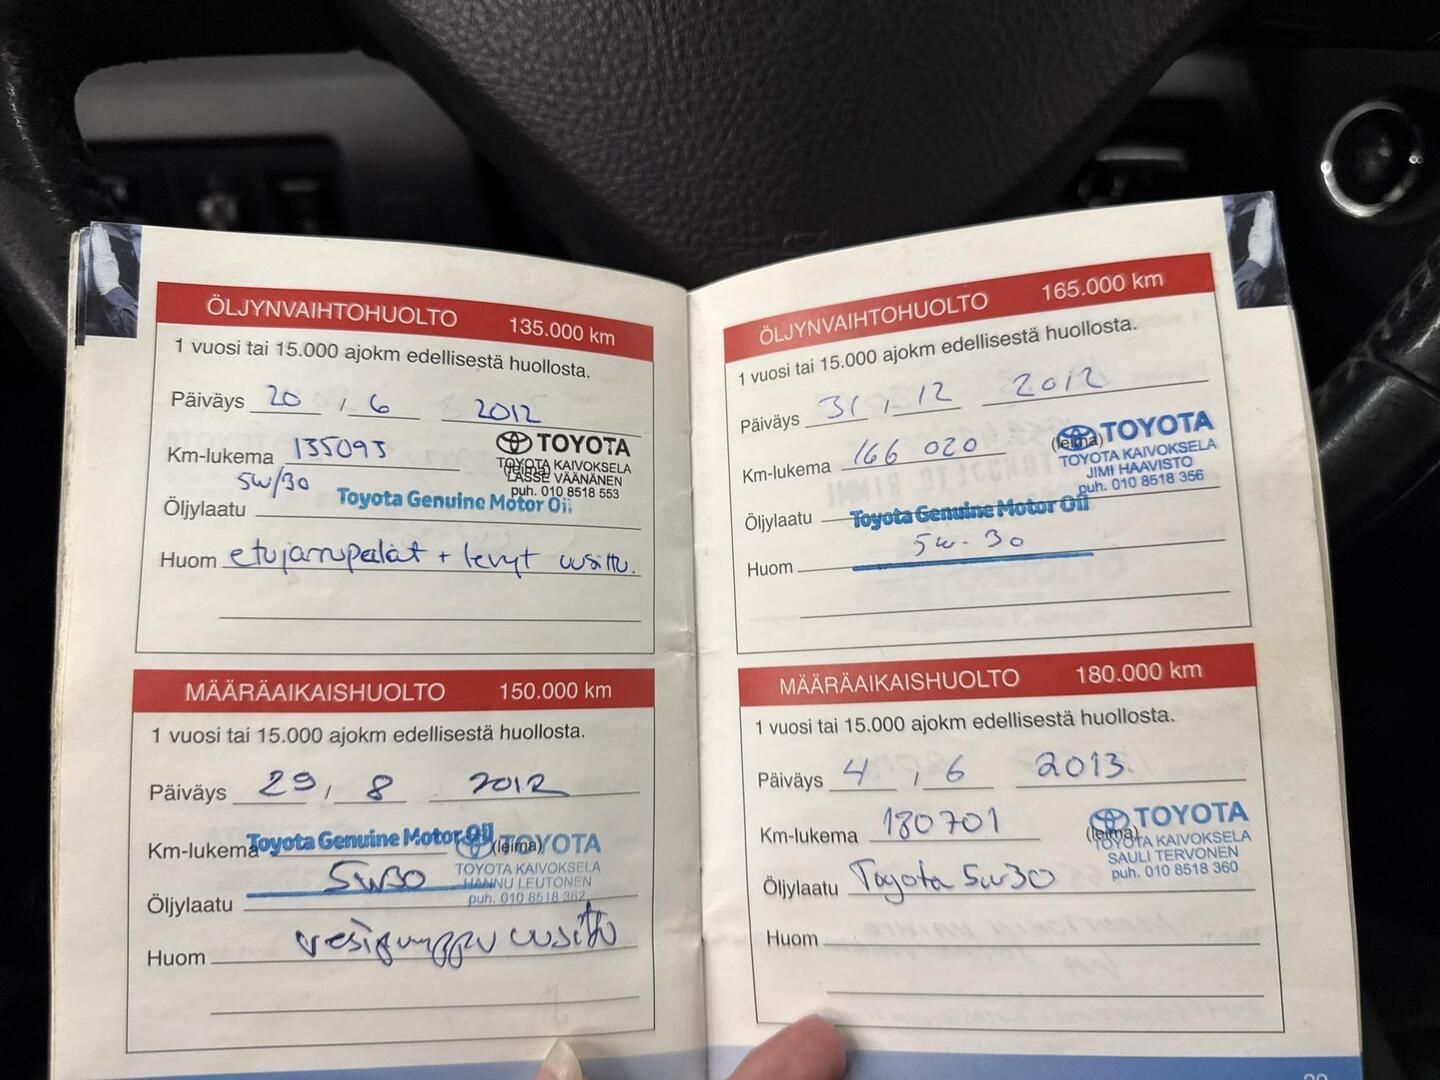 ÖLJYNVAIHTOHUOLTO 135.000 km
1 vuosi tai 15.000 ajokm edellisestä huollosta.
Päiväys 20 / 6 2012
Km-lukema 135093
TOYOTA
(leima)
TOYOTA KAIVOKSELA
LASSE VÄÄNÄNEN
puh. 010 8518 553
5w/30
Öljylaatu Toyota Genuine Motor Oil
Huom etujarrupalat + levyt uusittu.
MÄÄRÄAIKAISHUOLTO 150.000 km
1 vuosi tai 15.000 ajokm edellisestä huollosta.
Päiväys 29 / 8 2012
Km-lukema Toyota Genuine Motor Oil
(leima) TOYOTA
TOYOTA KAIVOKSELA
HANNU LEUTONEN
puh. 010 8518 362
5w30
Öljylaatu
Huom vesipumppu uusittu
ÖLJYNVAIHTOHUOLTO 165.000 km
1 vuosi tai 15.000 ajokm edellisestä huollosta.
Päiväys 31 / 12 2012
Km-lukema 166 020
(leima) TOYOTA
TOYOTA KAIVOKSELA
JIMI HAAVISTO
puh. 010 8518 356
Öljylaatu Toyota Genuine Motor Oil
5w-30
Huom
MÄÄRÄAIKAISHUOLTO 180.000 km
1 vuosi tai 15.000 ajokm edellisestä huollosta.
Päiväys 4 / 6 2013
Km-lukema 180701
(leima) TOYOTA
TOYOTA KAIVOKSELA
SAULI TERVONEN
puh. 010 8518 360
Öljylaatu Toyota 5w30
Huom